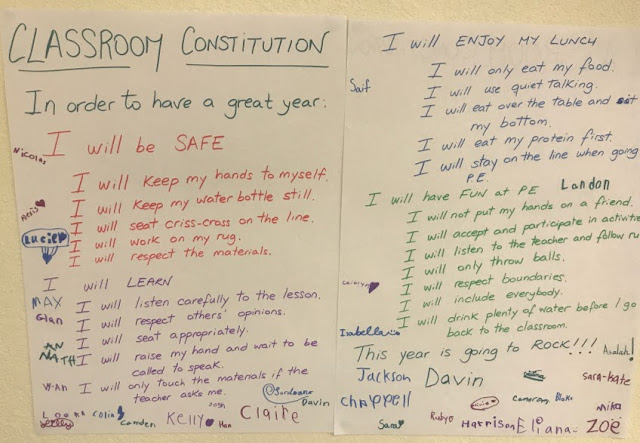 CLASSROOM CONSTITUTION
In order to have a great year:
I will be SAFE
Nicolas
I will keep my hands to myself.
I will keep my water bottle still.
I will seat criss-cross on the line.
I will work on my rug.
I will respect the materials.
Lucie
I will LEARN
MAX
I will listen carefully to the lesson.
Gian
I will respect others' opinions.
I will seat appropriately.
I will raise my hand and wait to be
called to speak.
I will only touch the materials if the
teacher asks me.
Davin
Colin
Camden
Kelly
Han
Claire
I will ENJOY MY LUNCH
Saif
I will only eat my food.
I will use quiet talking.
I will eat over the table and sit
my bottom.
I will eat my protein first.
I will stay on the line when going
P.E.
I will have FUN at PE
Landon
I will not put my hands on a friend.
I will accept and participate in activitie
I will listen to the teacher and follow ru
I will only throw balls.
I will respect boundaries.
I will include everybody.
I will drink plenty of water before I go
back to the classroom.
Isabella
This year is going to ROCK!!!
Jackson
Davin
Sara-Kate
Chappell
Cameron
Blake
Mika
Sara
Ruby
Harrison
Eliana
Zoë